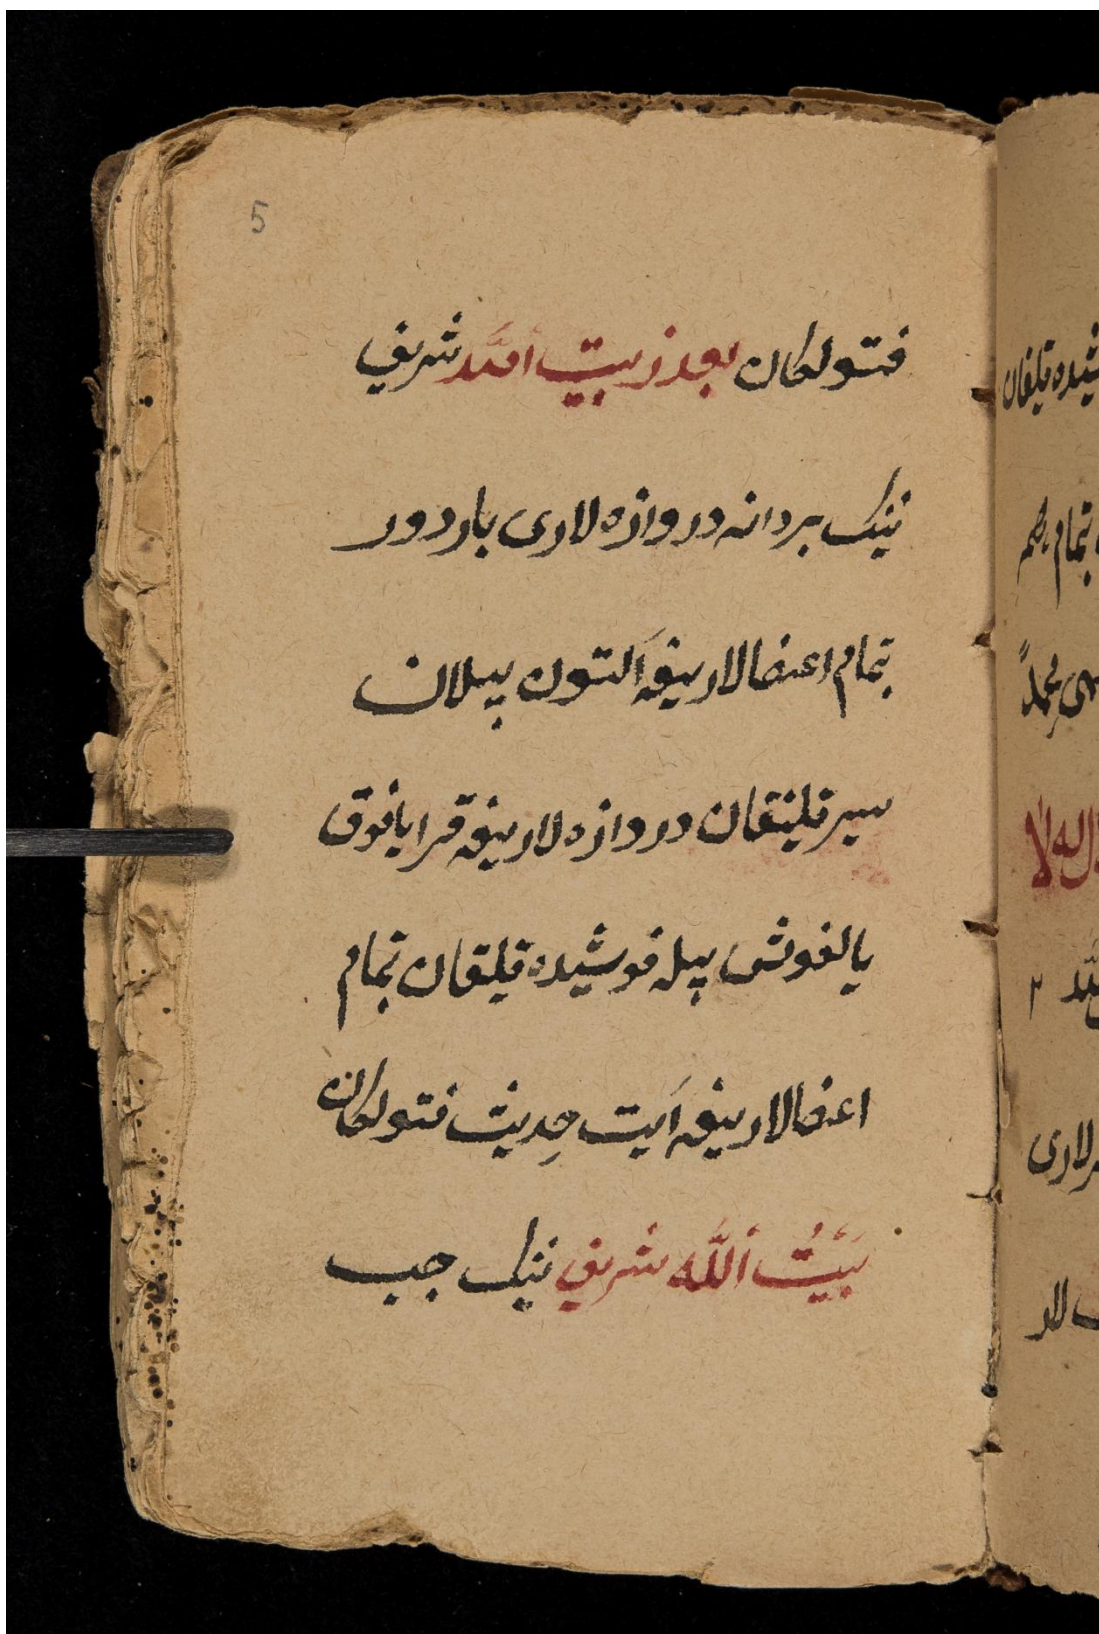 5
فتولكان بعد ز بيت الله شريف
نينك بردانه دروازه لارى باردور
تمام اعضالارىغه آلتون بيلان
سير قلينقان دروازه لارىغه قرا يافوق
يالغوش بيله فوشيده قيلقان تمام
اعضالارىغه آيت حديث فتولكان
بَيْتُ اللّه شريف نينك جيب
شيده قيلقان
تمام
محمدً
اله لا
٢
لارى